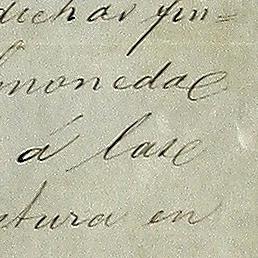 dichas fin=
lmonedas
á las
tura en